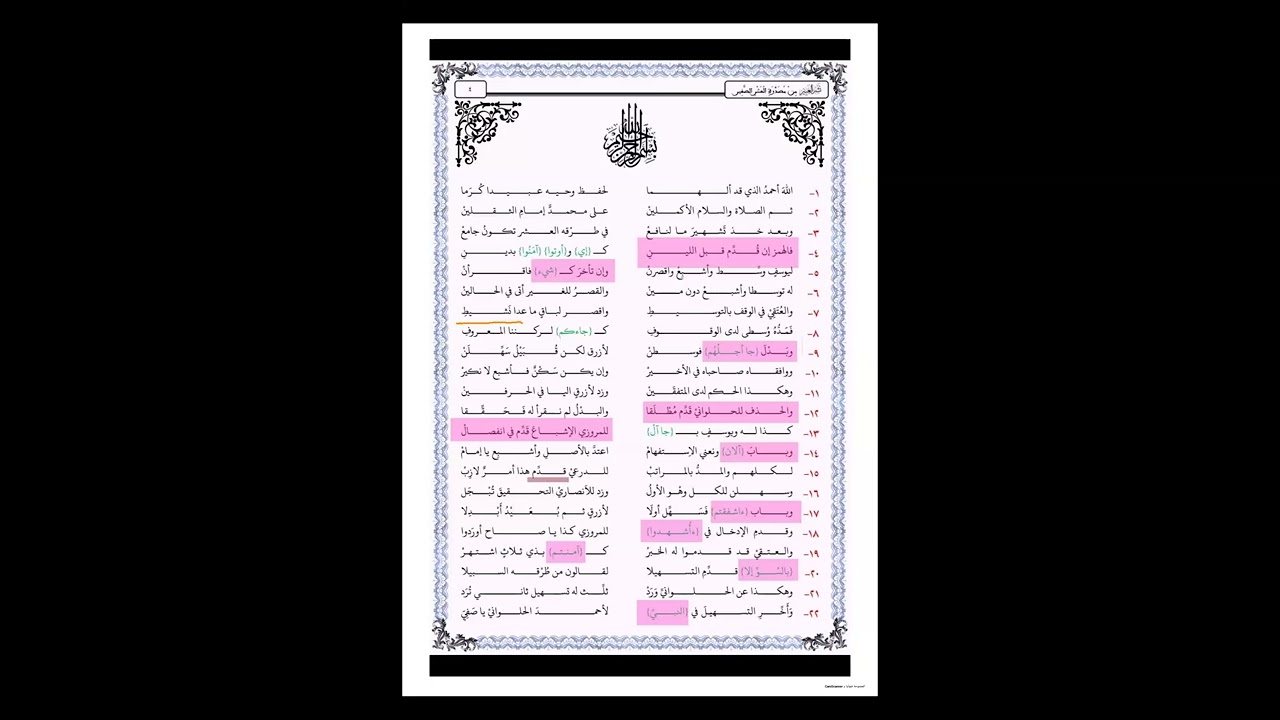 ٤
بسم الله الرحمن الرحيم
١- اللهَ أحمدُ الذي قد ألهما لحفظ وحيه عبيدا كُرَما
٢- ثم الصلاة والسلام الأكملينْ على محمدٍ إمامِ الثقلينْ
٣- وبعد خذ تشهيرَ ما لنافعْ في طرْقه العشر تكونُ جامعْ
٤- فالهمز إن قُدِّم قبل اللينِ كـ {إي} و{أوتوا} {آمَنُوا} بدينِ
٥- ليوسفٍ وسِّط وأشبعْ واقصرنْ وإن تأخرَ كـ {شيء} فاقرأنْ
٦- له توسطا وأشبعْ دون مينْ والقصرُ للغير أتى في الحالينْ
٧- والعُتَقِيْ في الوقف بالتوسيطِ واقصر لباقٍ ما عدا نَشيطِ
٨- فَمَدُّهُ وُسطى لدى الوقوفِ كـ {جاءكم} لركننا المعروفِ
٩- وبَدِّلَ {جا أجلُهُم} فوسطنْ لأزرقٍ لكن قُبَيْلُ سَهِّلَنْ
١٠- ووافقاه صاحباه في الأخيرْ وإن يكن سَكْنٌ فأشبع لا نكيرْ
١١- وهكذا الحكم لدى المتفقَينْ وزد لأزرقِ اليا في الحرفينْ
١٢- والحذف للحلوانيْ قَدِّم مُطْلَقا والبدلُ لم نقرأ له فَحَقِّقا
١٣- كذا له ويوسفٍ بـ {جا آلَ} للمروزي الإشباعَ قَدِّم في انفصالْ
١٤- وبابَ {آلان} ونعني الاستفهامْ اعتدَّ بالأصل وأشبع يا إمامْ
١٥- لكلهم والمدُّ بالمراتبْ للدرعيْ قدَّم هذا أمرٌ لازبْ
١٦- وسهلن للكل وهو الأولُ وزد للأنصاريْ التحقيقَ تُبْجَل
١٧- وباب {ءاشفقتم} فَسَهِّل أولا لأزرقٍ ثم بُعَيْدُ أَبْدِلا
١٨- وقدم الإدخال في {ءأُشهدوا} للمروزي كذا يا صاح أوردوا
١٩- والعتقيْ قد قدموا له الخبرْ كـ {آمنتم} بذي ثلاثٍ اشتهرْ
٢٠- {بالسُّوِّ إلا} قدِّمِ التسهيلا لقالون من طُرْقه السبيلا
٢١- وهكذا عن الحلوانيِّ وَرَدْ ثلِّث له تسهيل ثاني تُرَد
٢٢- وَأَخِّرِ التسهيلَ في {النبيِّ} لأحمدَ الحلوانيْ يا صَفِيّ
CamScanner